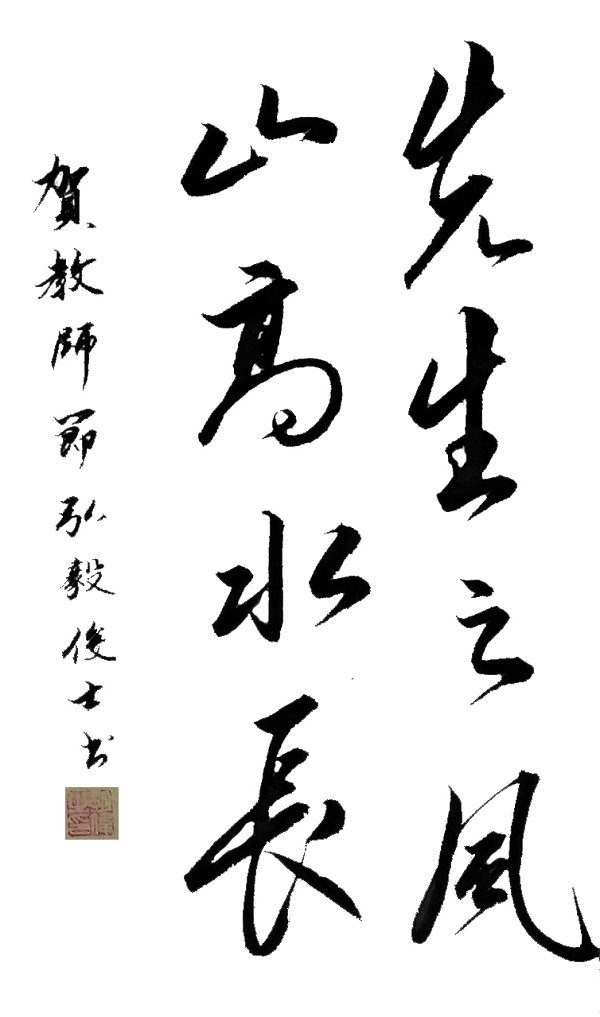 先生之风
山高水長
賀教師節弘毅俊士书